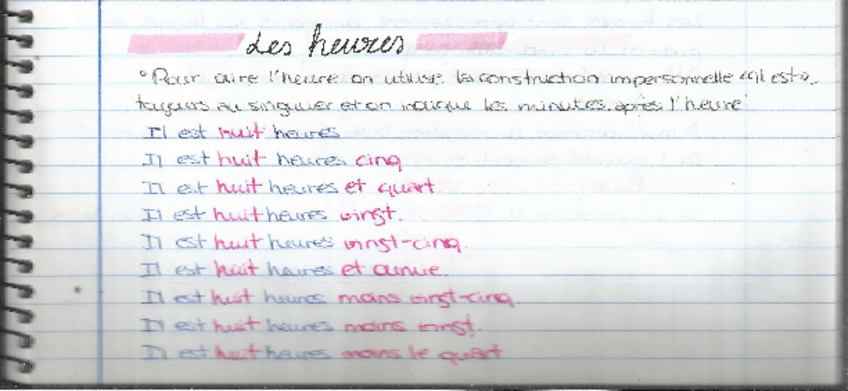 Les heures
°Pour dire l'heure on utilise la construction impersonnelle «il est»,
toujours au singulier et on indique les minutes après l'heure
Il est huit heures
Il est huit heures cinq
Il est huit heures et quart
Il est huit heures vingt.
Il est huit heures vingt-cinq
Il est huit heures et demie.
Il est huit heures moins vingt-cinq.
Il est huit heures moins vingt.
Il est huit heures moins le quart